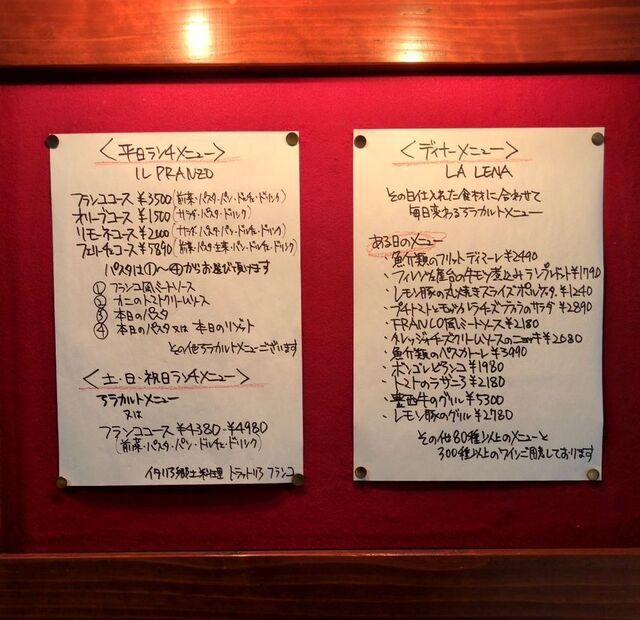 <平日ランチメニュー>
IL PRANZO
フランココース ¥3500 (前菜・パスタ・パン・ドルチェ・ドリンク)
オリーブコース ¥1500 (サラダ・パスタ・ドリンク)
リモーネコース ¥2100 (サラダ・パスタ・パン・ドルチェ・ドリンク)
フェリーチェコース ¥5890 (前菜・パスタ・主菜・パン・ドルチェ・ドリンク)
パスタは①〜④からお選び頂けます
① フランコ風ミートソース
② カニのトマトクリームソース
③ 本日のパスタ
④ 本日のパスタ又は本日のリゾット
その他アラカルトメニューございます
<土・日・祝日ランチメニュー>
アラカルトメニュー
又は
フランココース ¥4380-¥4980
(前菜・パスタ・パン・ドルチェ・ドリンク)
イタリア郷土料理 トラットリア フランコ
<ディナーメニュー>
LA CENA
その日仕入れた食材に合わせて
毎日変わるアラカルトメニュー
ある日のメニュー
・魚介類のフリットディマーレ ¥2490
・フィレンツェ屋台の牛モツ煮込みランプレドット ¥1790
・レモン豚の丸焼きスライスポルケッタ ¥1240
・プチトマトとモッツァレラチーズブッラータのサラダ ¥2890
・FRANCO風ミートソース ¥2180
・タレッジォチーズクリームソースのニョッキ ¥2080
・魚介類のペスカトーレ ¥3990
・ボンゴレビアンコ ¥1980
・トマトのラザニア ¥2180
・豊西牛のグリル ¥5300
・レモン豚のグリル ¥2780
その他80種以上のメニューと
300種以上のワインご用意しております